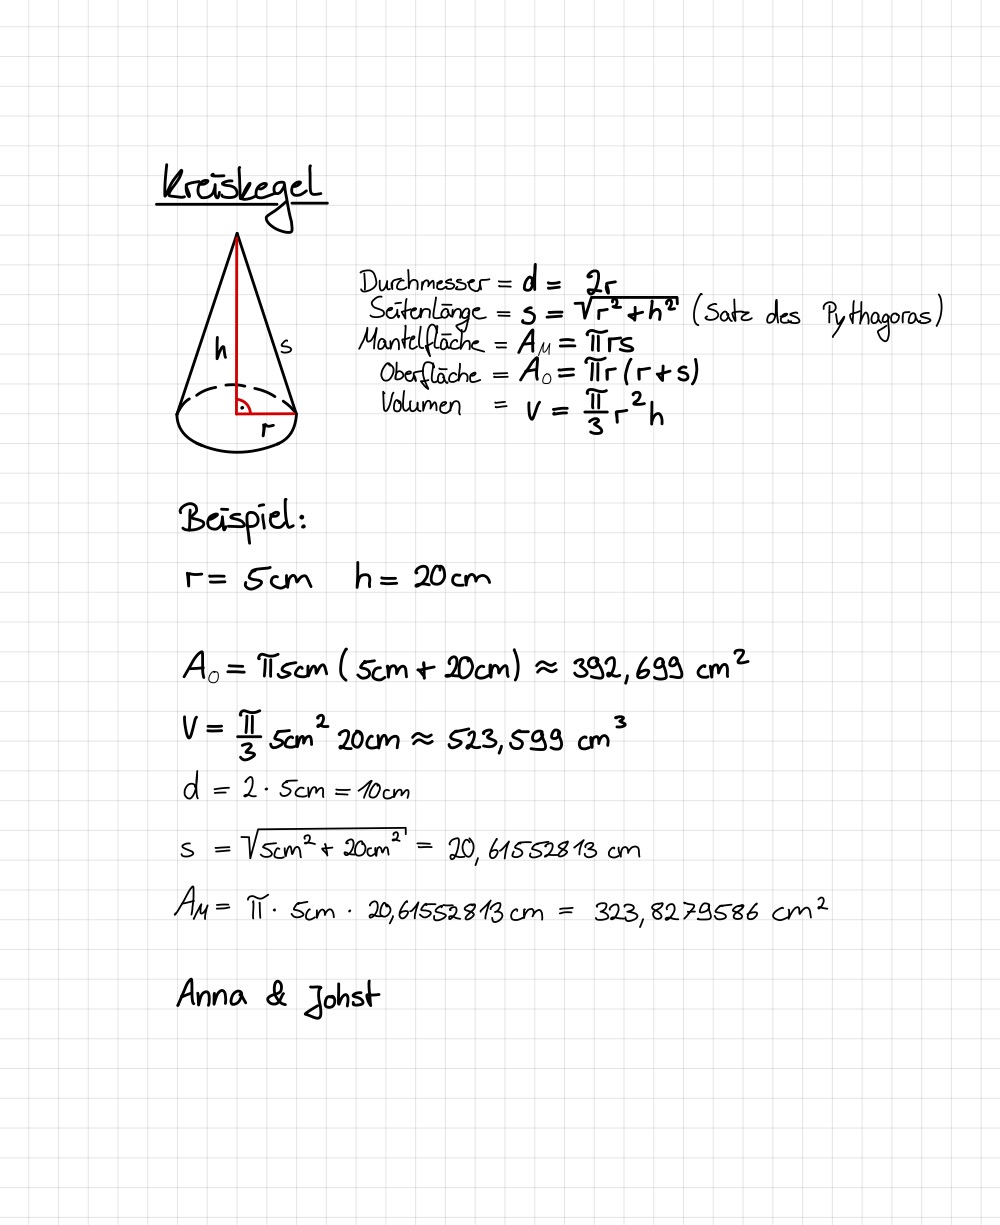 Kreiskegel
Durchmesser = d = 2r
Seitenlänge = s = √(r² + h²) (Satz des Pythagoras)
Mantelfläche = A_M = πrs
Oberfläche = A_O = πr(r+s)
Volumen = V = π/3 r²h
h
s
r
Beispiel:
r = 5cm h = 20cm
A_O = π5cm (5cm + 20cm) ≈ 392,699 cm²
V = π/3 5cm² 20cm ≈ 523,599 cm³
d = 2 · 5cm = 10cm
s = √(5cm² + 20cm²) = 20,61552813 cm
A_M = π · 5cm · 20,61552813cm = 323,8279586 cm²
Anna & Johst